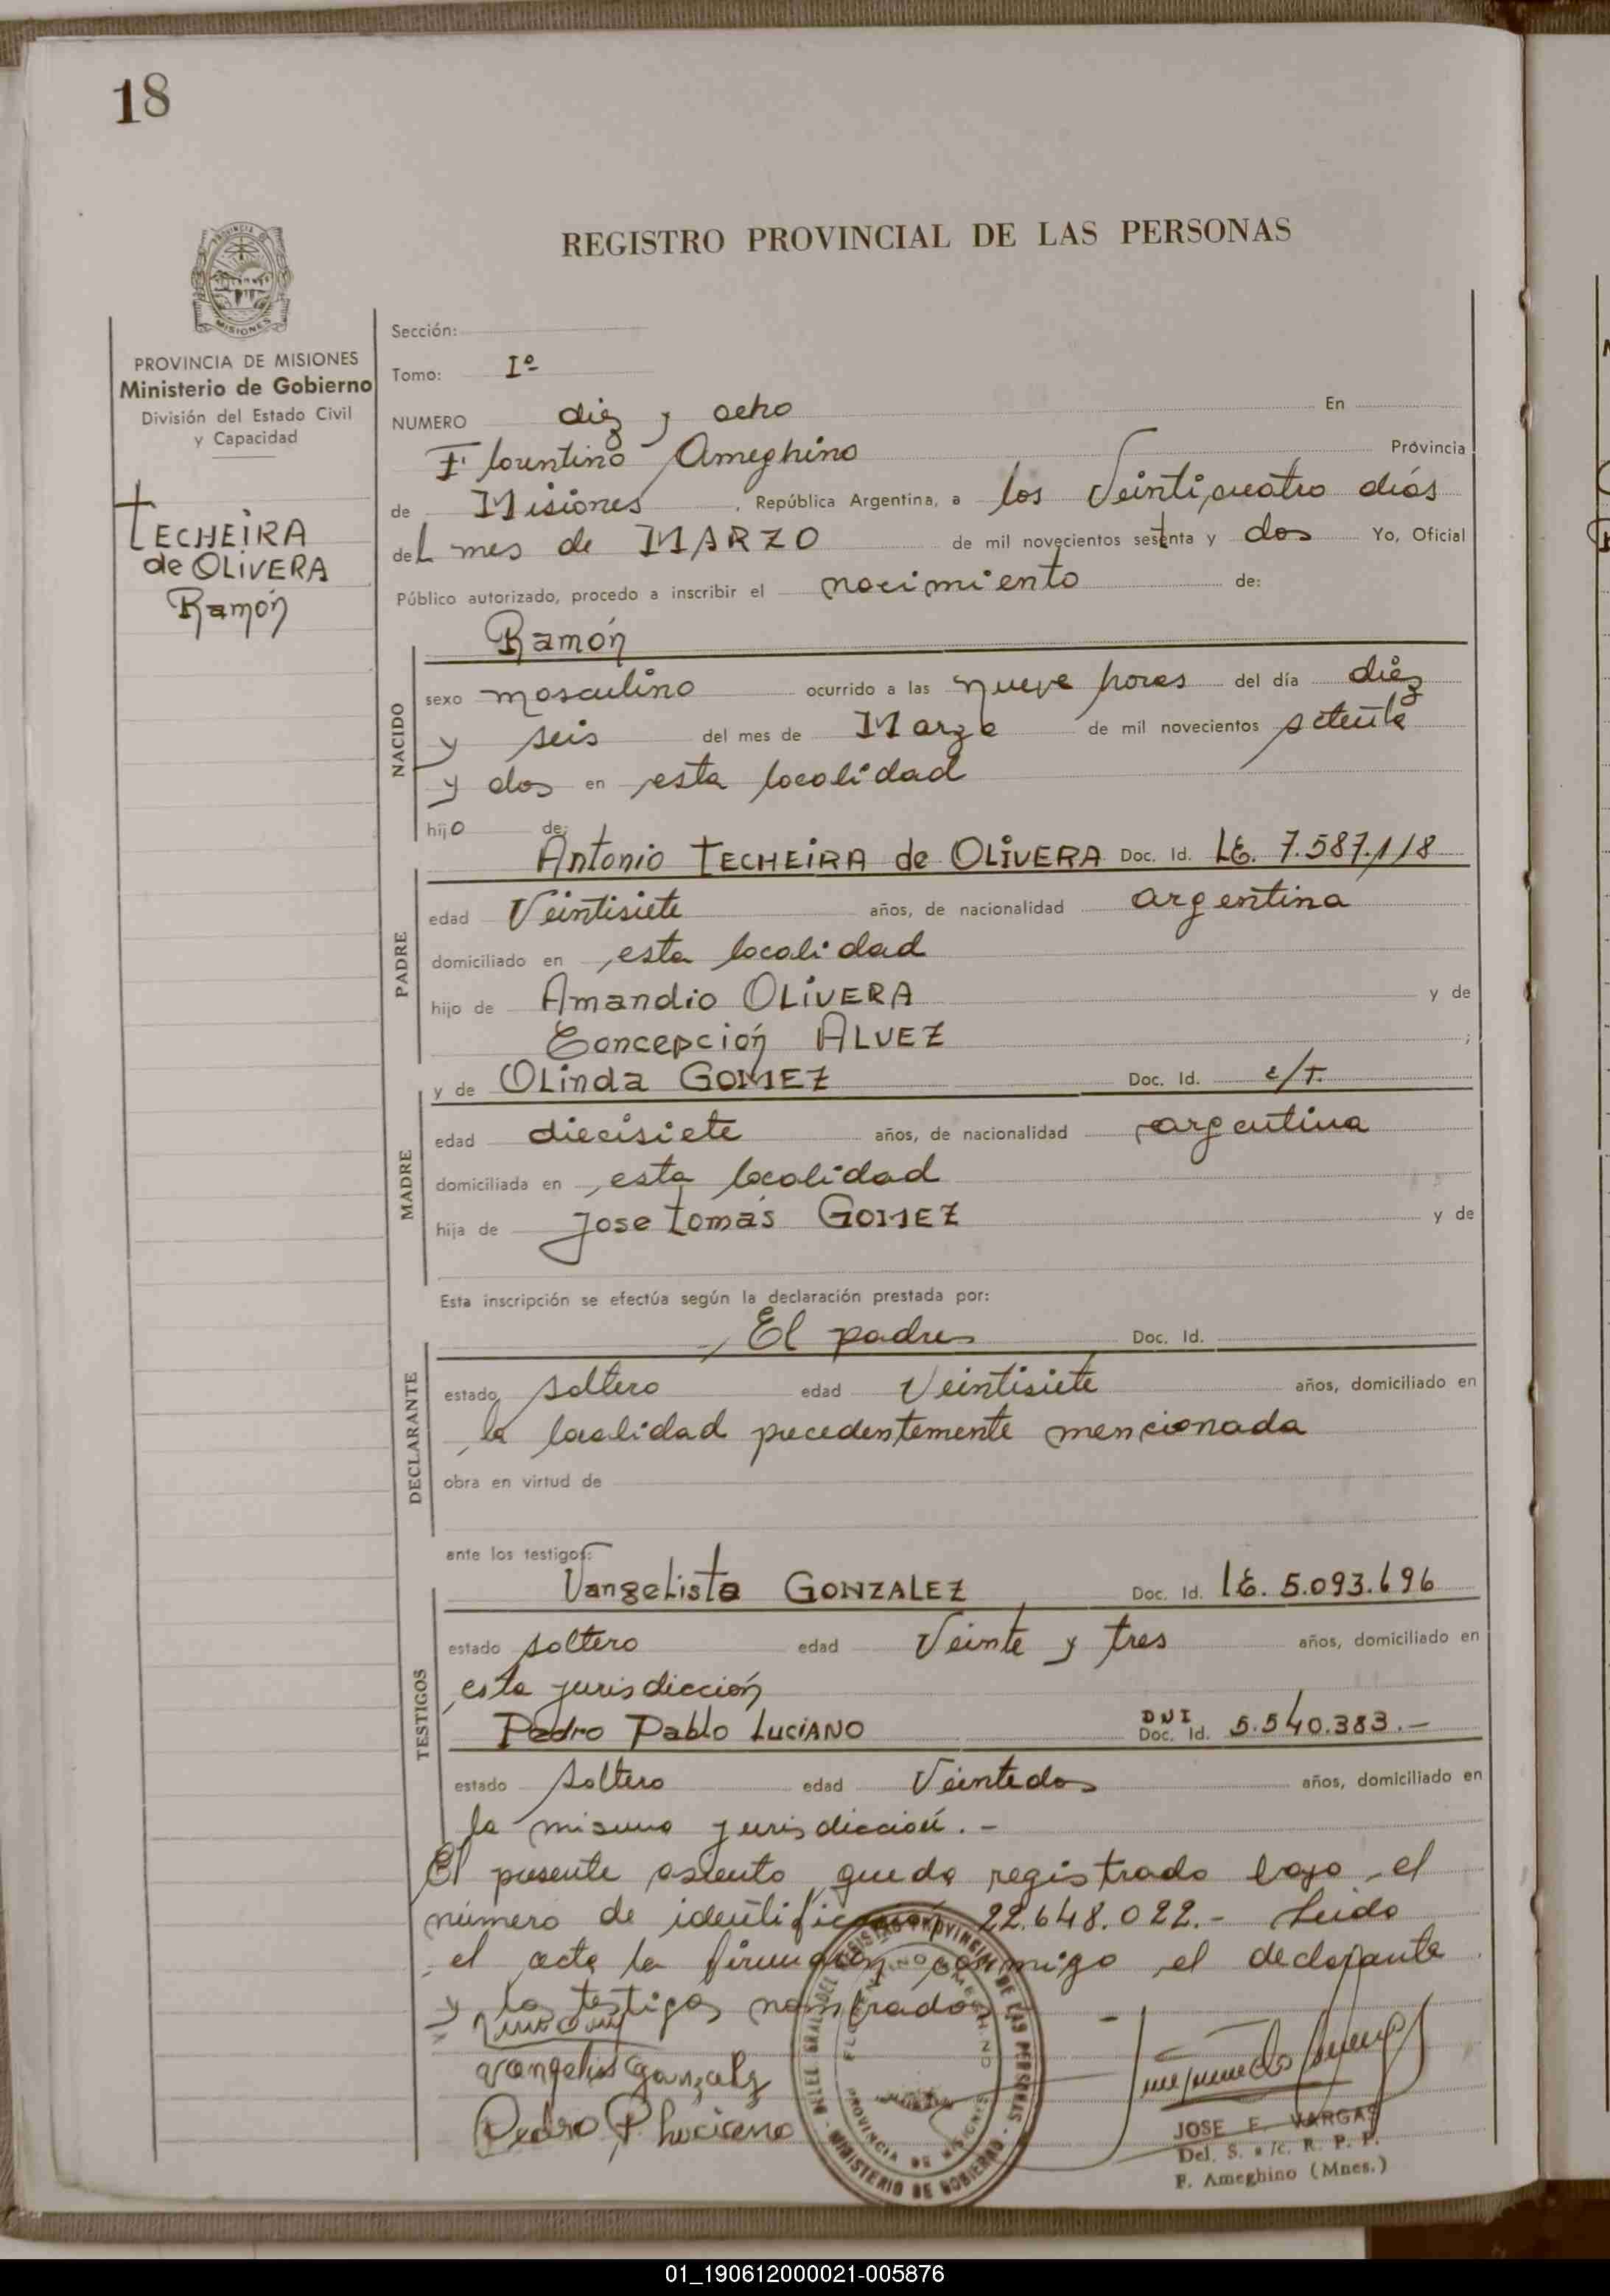 18
REGISTRO PROVINCIAL DE LAS PERSONAS
PROVINCIA DE MISIONES
Ministerio de Gobierno
División del Estado Civil
y Capacidad
TECHEIRA
de OLIVERA
Ramón
Sección:
Tomo: Iº
NUMERO diez y ocho En
Florentino Ameghino Provincia
de Misiones, República Argentina, a los Veinticuatro días
del mes de MARZO de mil novecientos setenta y dos Yo, Oficial
Público autorizado, procedo a inscribir el nacimiento de:
Ramón
NACIDO
sexo masculino ocurrido a las nueve horas del día diez
y seis del mes de Marzo de mil novecientos setenta
y dos en esta localidad
hijo de:
Antonio TECHEIRA de OLIVERA Doc. Id. LE. 7.587.118
PADRE
edad Veintisiete años, de nacionalidad argentina
domiciliado en esta localidad
hijo de Amandio OLIVERA y de
Concepción ALVEZ ;
y de OLinda GOMEZ Doc. Id. e/T.
MADRE
edad diecisiete años, de nacionalidad argentina
domiciliada en esta localidad
hija de Jose Tomás GOMEZ y de
Esta inscripción se efectúa según la declaración prestada por:
El padre Doc. Id.
DECLARANTE
estado soltero edad Veintisiete años, domiciliado en
la localidad precedentemente mencionada
obra en virtud de
ante los testigos:
Vangelista GONZALEZ Doc. Id. LE. 5.093.696
TESTIGOS
estado soltero edad Veinte y tres años, domiciliado en
esta jurisdicción
Pedro Pablo LUCIANO DNI Doc. Id. 5.540.383.-
estado soltero edad Veintedos años, domiciliado en
la misma jurisdicción.-
El presente asiento queda registrado bajo el
número de identificación 22.648.022.- Leido
el acta la firman conmigo el declarante
y los testigos nombrados -
Vangelis Gonzalez
Pedro P. Luciano
JOSE F. VARGAS
Del. S. a/c. R. P. P.
F. Ameghino (Mnes.)
01_190612000021-005876